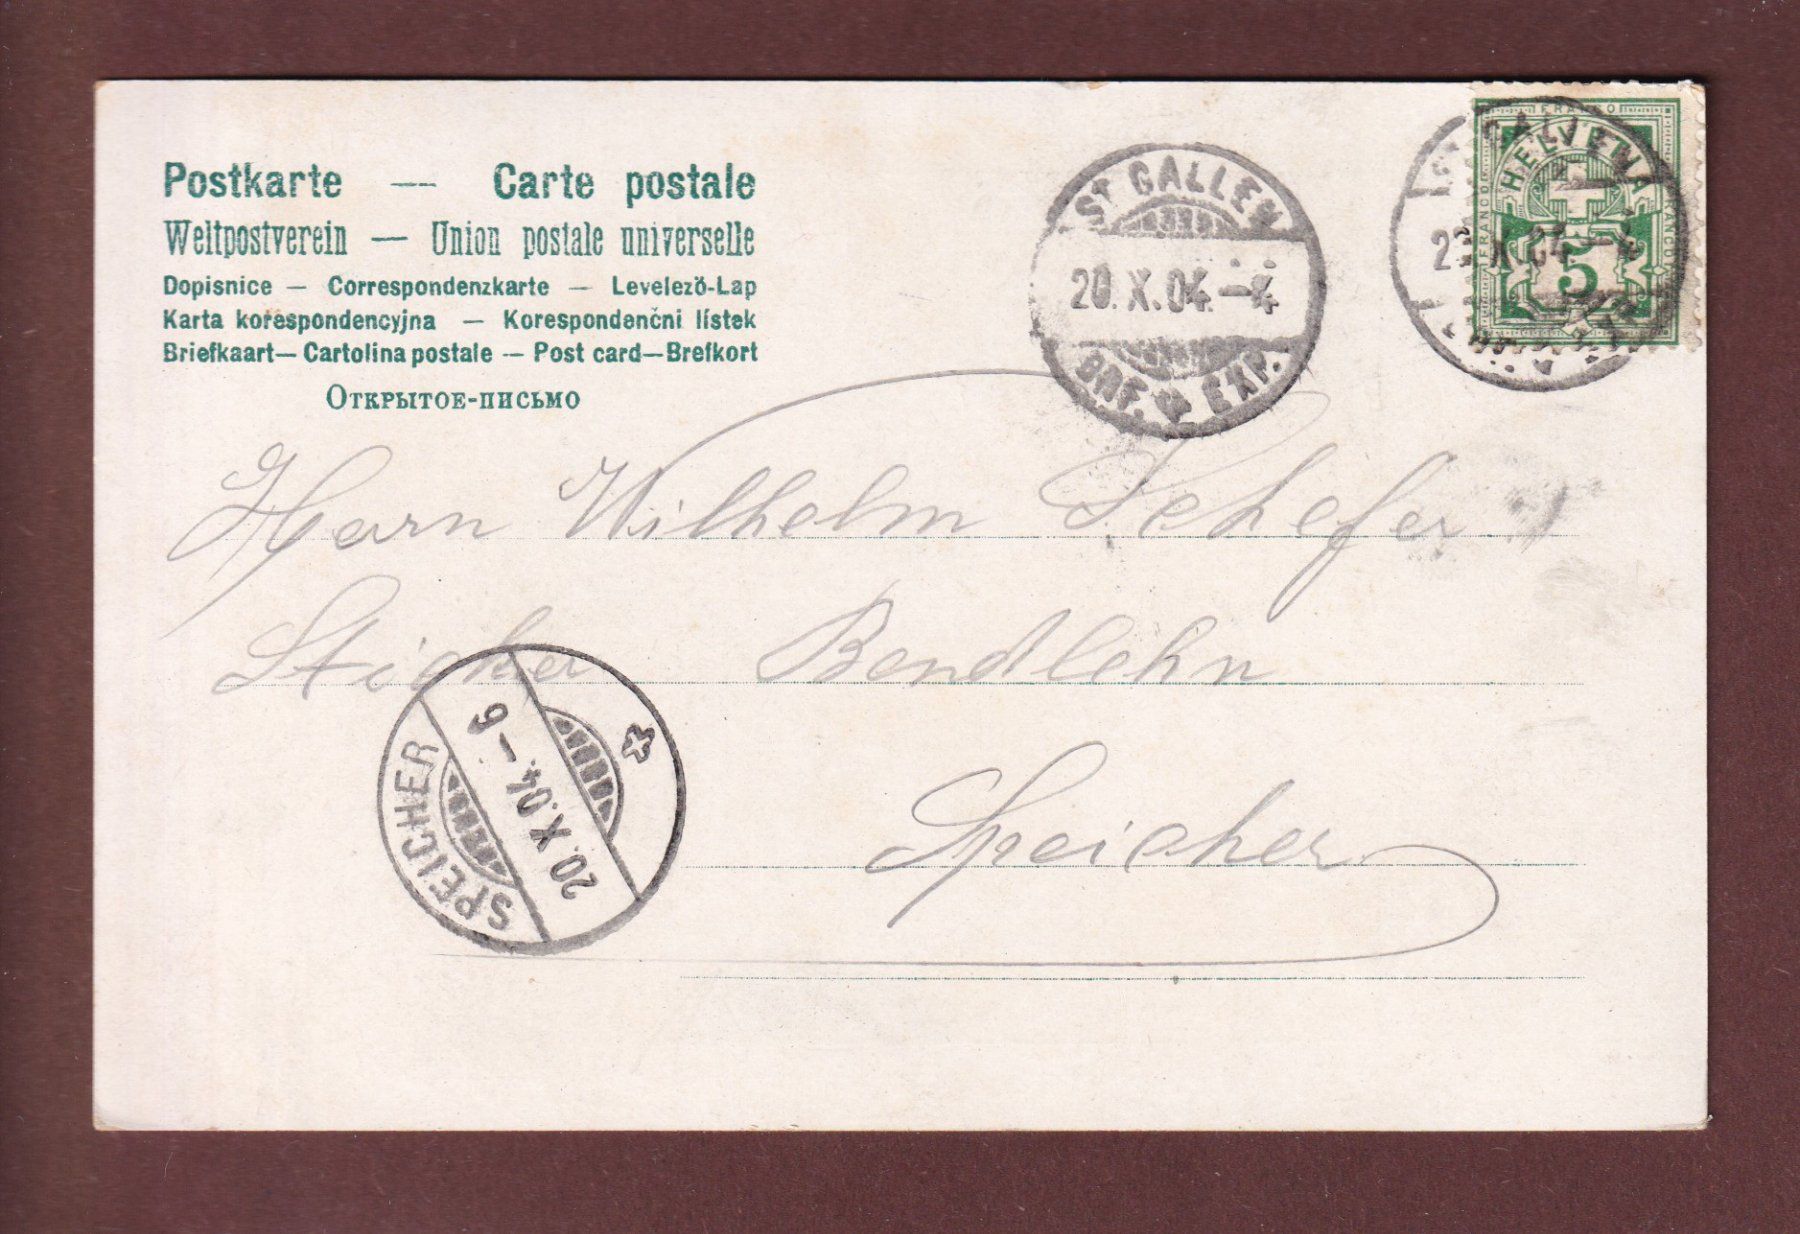 Postkarte — Carte postale
Weltpostverein — Union postale universelle
Dopisnice — Correspondenzkarte — Levelező-Lap
Karta korespondencyjna — Korespondenční lístek
Briefkaart— Cartolina postale — Post card—Brefkort
Открытое-письмо
ST GALLEN
20.X.04.–4
BRF. EXP.
FRANCO
HELVETIA
FRANCO
FRANCO
5
X.04.
Herrn Wilhelm Schefer
Sticker Bendlehn
Speicher
SPEICHER
20.X.04.–6